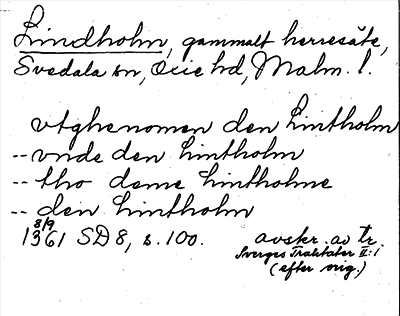 Lindholm, gammalt herresäte,
Svedala sn, Oxie hd, Malm. l.
vtghenomen den Lintholm
-- vnde den Lintholm
-- tho deme Lintholme
-- den Lintholm
8/9
1361 SD 8, s. 100. avskr. av tr.
Sverges Traktater II:1
(efter orig.)